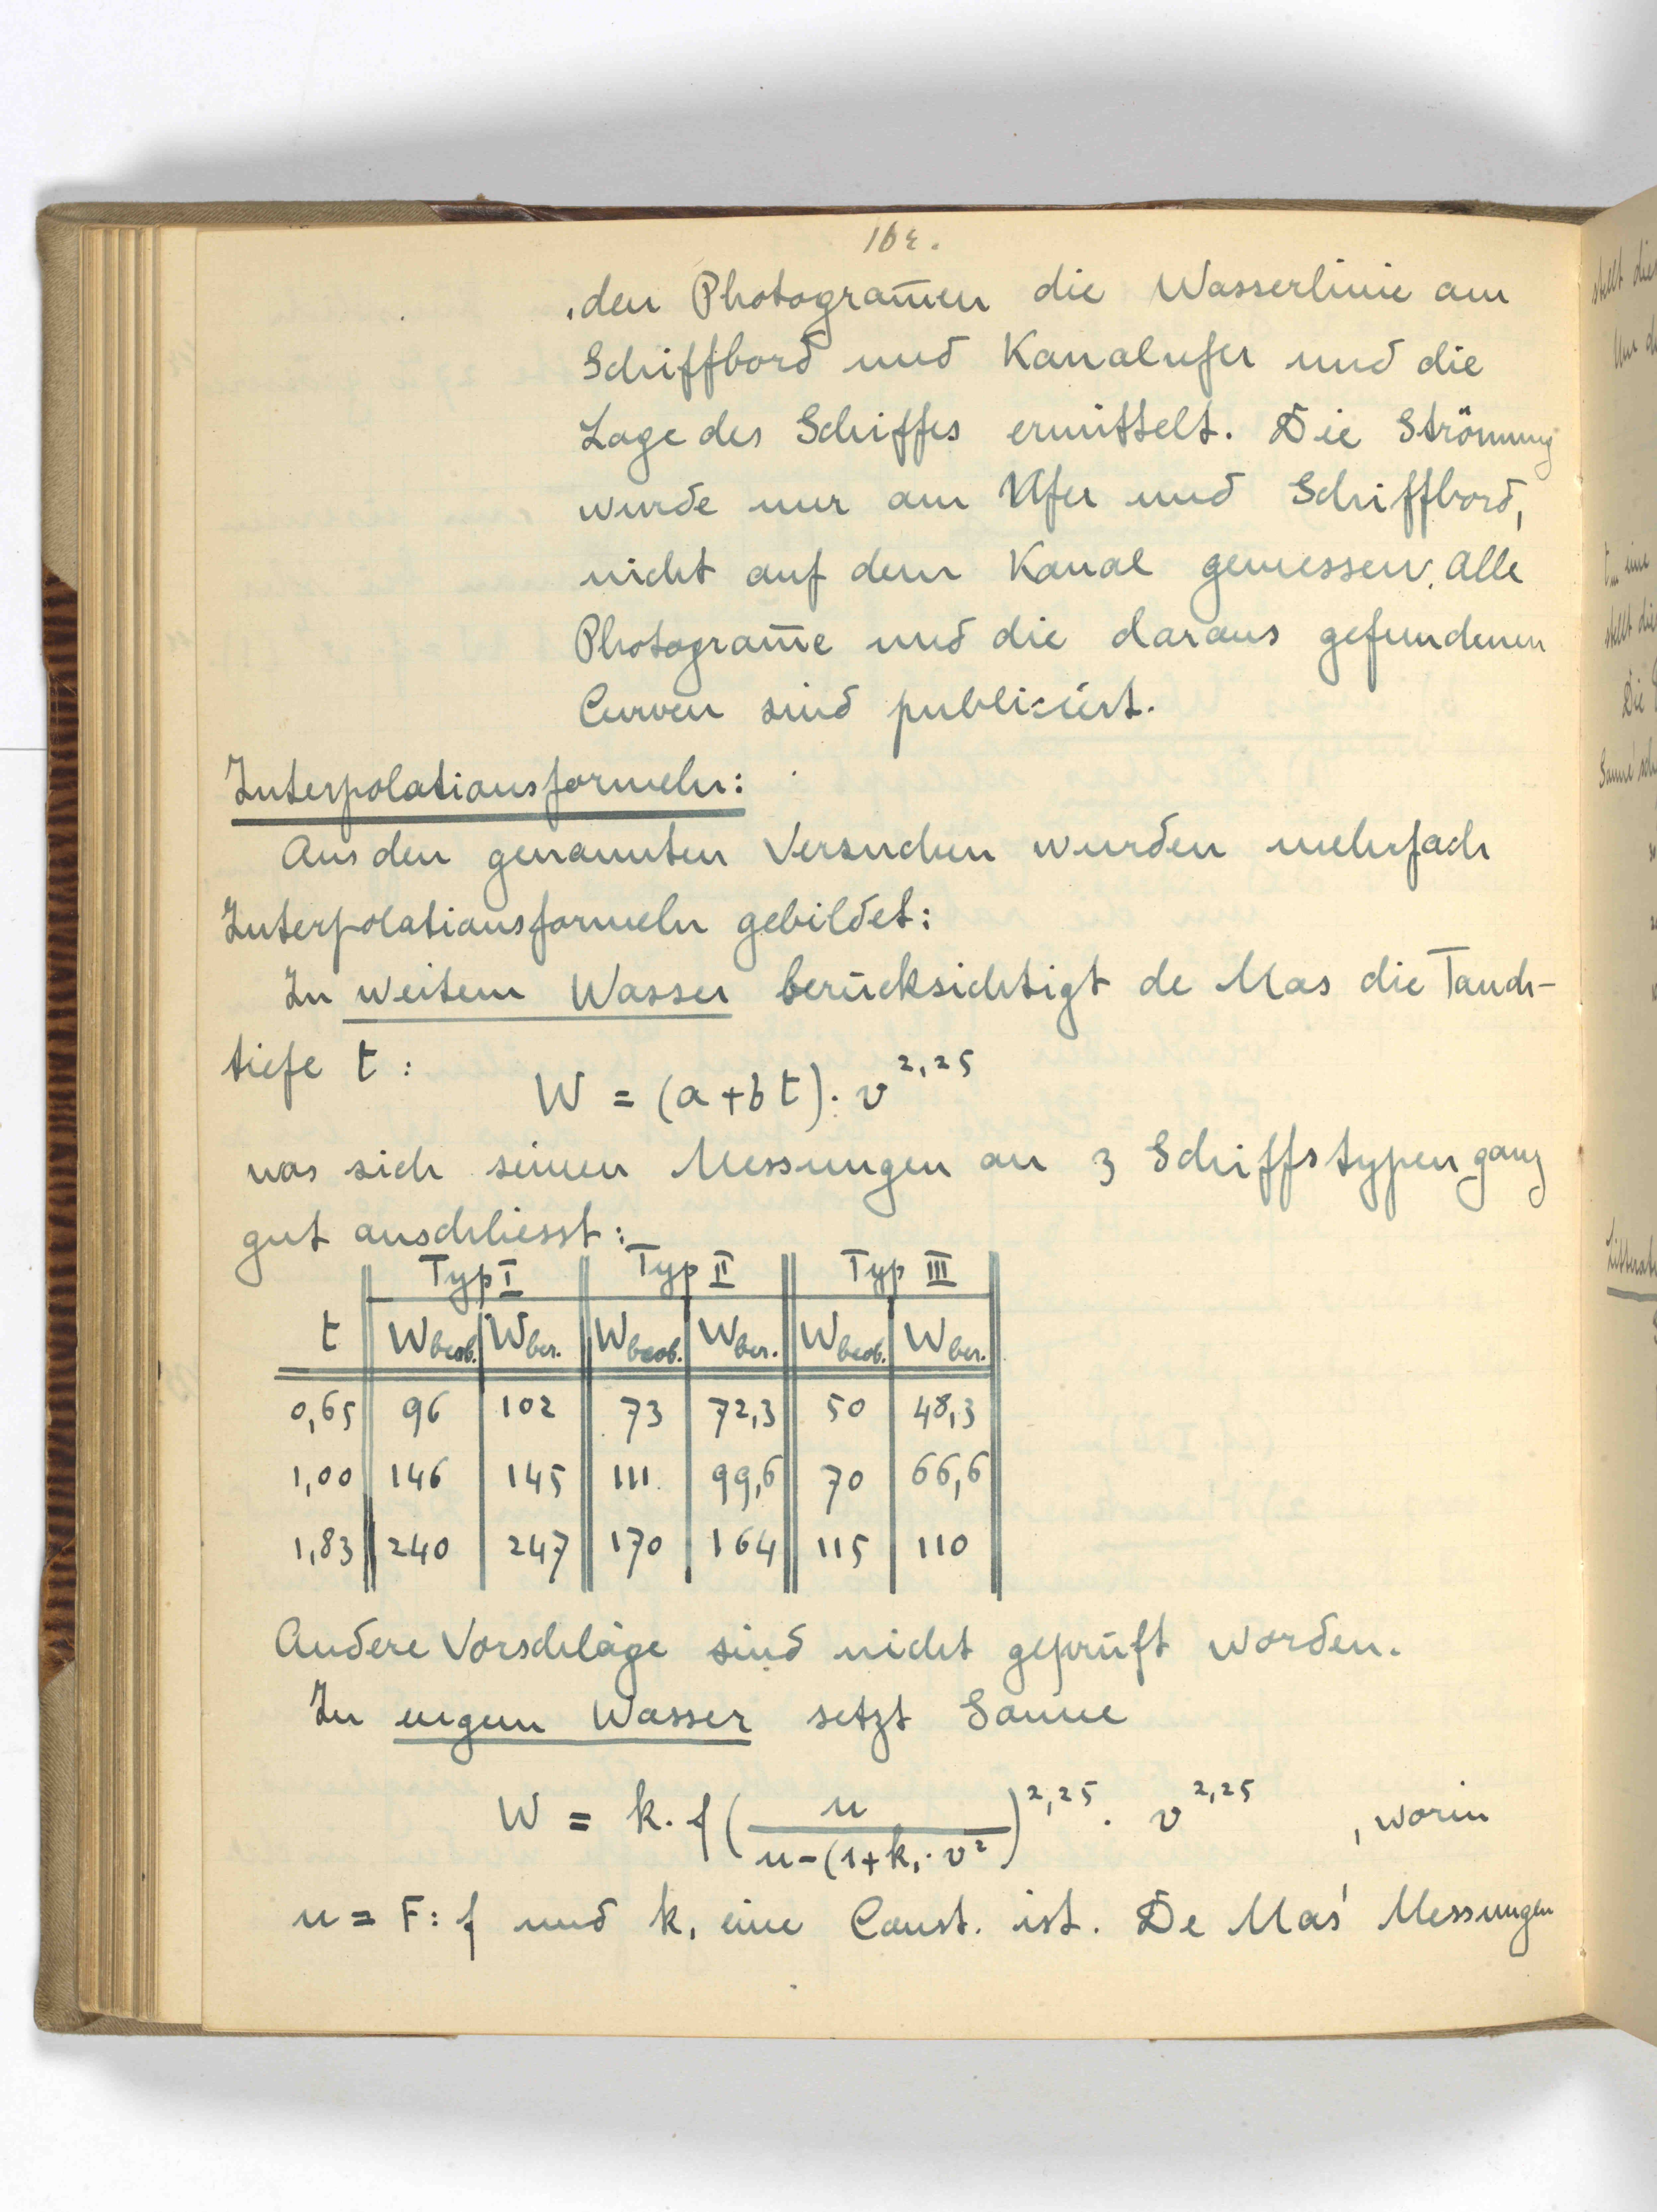 162.
den Photogram̅en die Wasserlinie am
Schiffbord und Kanalufer und die
Lage des Schiffes ermittelt. Die Strömung
wurde nur am Ufer und Schiffbord,
nicht auf dem Kanal gemessen. Alle
Photogram̅e und die daraus gefundenen
Curven sind publiciert.
Interpolationsformeln:
Aus den genannten Versuchen wurden mehrfach
Interpolationsformeln gebildet:
In weitem Wasser berücksichtigt de Mas die Tauch-
tiefe t:
W = (a + b t) · v^2,25
was sich seinen Messungen an 3 Schiffstypen ganz
gut anschliesst:
Typ I Typ II Typ III
t W beob. W ber. W beob. W ber. W beob. W ber.
0,65 96 102 73 72,3 50 48,3
1,00 146 145 111 99,6 70 66,6
1,83 240 247 170 164 115 110
Andere Vorschläge sind nicht geprüft worden.
In engem Wasser setzt Sanne
W = k · f (n / n - (1 + k₁ · v²)^2,25 · v^2,25 , worin
n = F : f und k₁ eine Const. ist. De Mas' Messungen
stellt
eine
stellt
Die